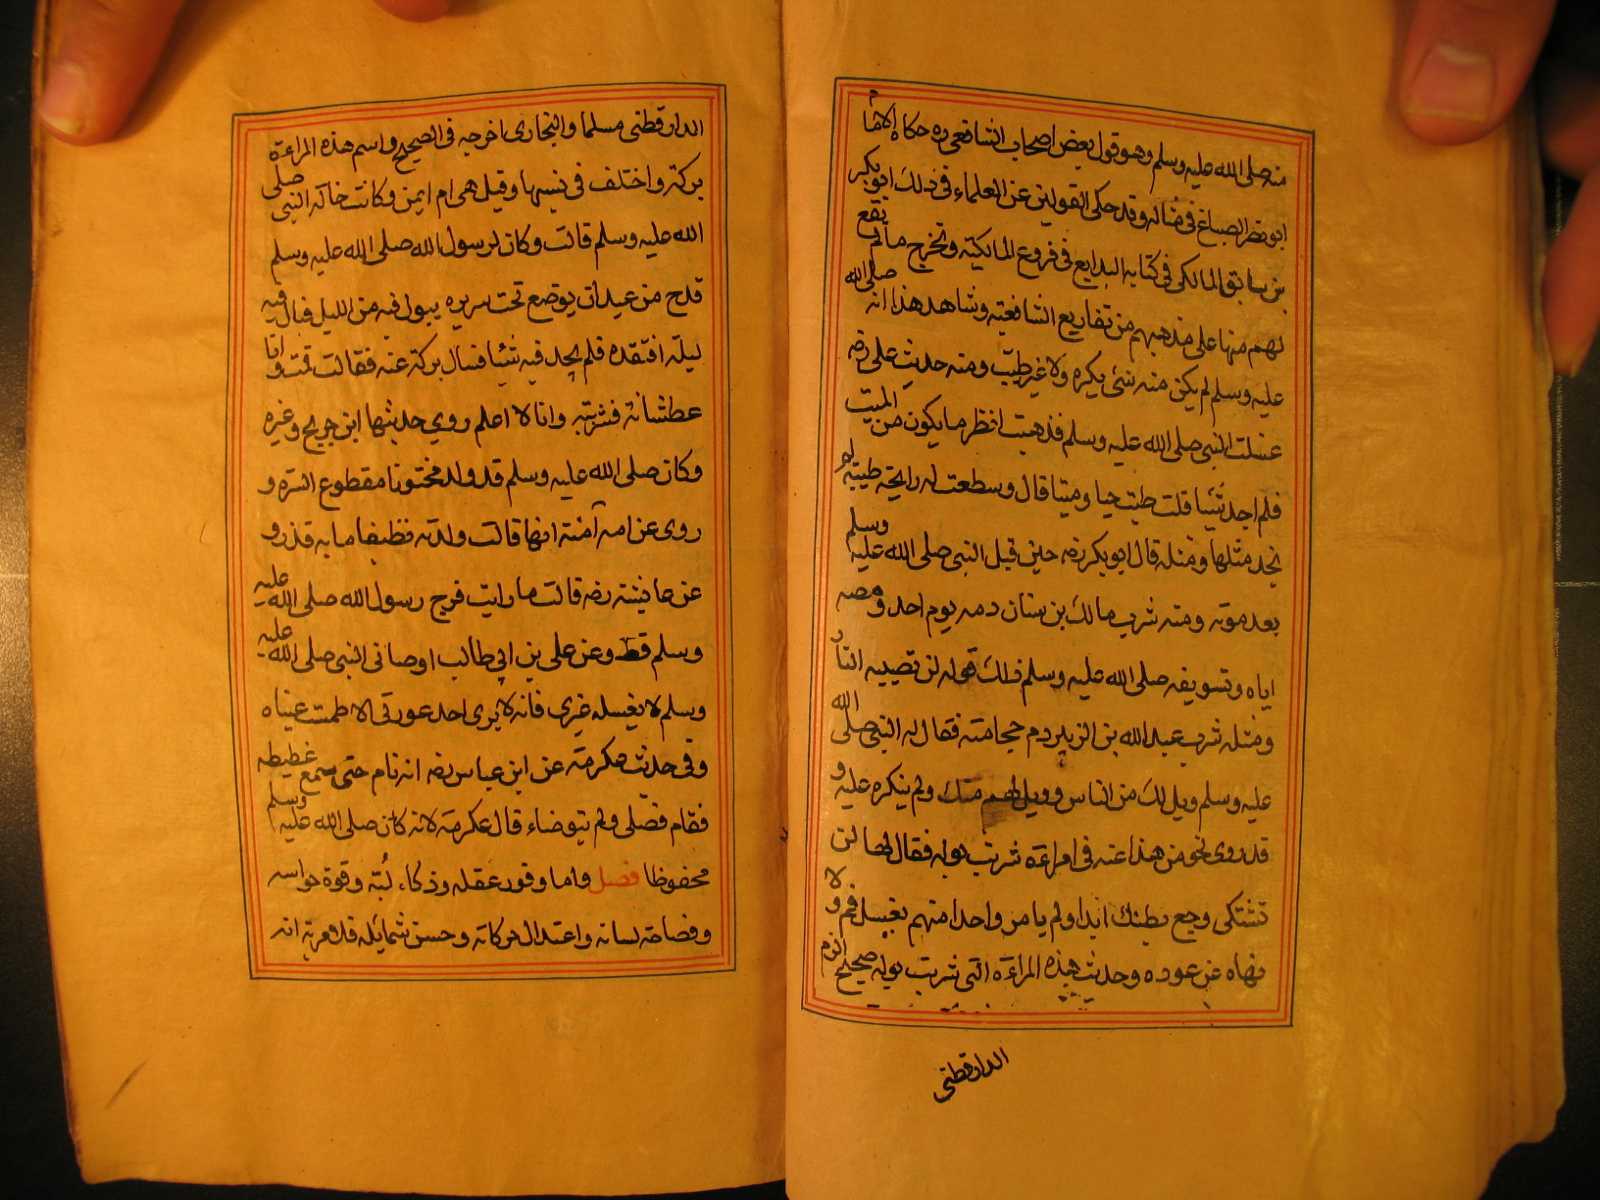 منه صلى الله عليه وسلم وهو قول بعض اصحاب الشافعي ره حكاه الامام
ابو نصر الصباغ في شماله وقد حكى القولين عن العلماء في ذلك ابو بكر
بن سابق المالكى في كتابه البدايع في فروع المالكية وتخرج مالم يقع
لهم منها على مذهبهم من تفاريع الشافعية وشاهد هذا انه صلى الله
عليه وسلم لم يكن منه شئ يكره ولا غير طيب ومنه حديث على رضه
غسلت النبى صلى الله عليه وسلم فذهبت انظر ما يكون من الميت
فلم اجد شئيا قلت طبت حيا وميتا قال وسطعت له رايحة طيبة لم
نجد مثلها ومثله قال ابو بكر رضه حين قبل النبى صلى الله عليه وسلم
بعد موته ومنه شرب مالك بن سنان دمه يوم احد ومصه
اياه وتسويغه صلى الله عليه وسلم ذلك قوله لن تصيبه النار
ومثله شرب عبد الله بن الزبير دم حجامته فقال له النبى صلى الله
عليه وسلم ويل لك من الناس وويل لهم منك ولم ينكره عليه و
قد روى نحو من هذا عنه في امراءة شربت بوله فقال لها لن
تشتكى وجع بطنك ابدا ولم يامر واحدا منهم بغسل فم ولا
نهاه عن عوده وحديث هذه المراءة التى شربت بوله صحيح الزم
الدارقطنى
الدارقطنى مسلما والبخارى اخرجه في الصحيح واسم هذه المراءة
بركة واختلف في نسبها وقيل هى ام ايمن وكانت خالة النبى صلى
الله عليه وسلم قالت وكان لرسول الله صلى الله عليه وسلم
قدح من عيدان يوضع تحت سريره يبول فيه من الليل فبال فيه
ليلة افتقده فلم يجد فيه شئيا فسال بركة عنه فقالت قمت وانا
عطشانة فشربته وانا لا اعلم روي حديثها ابن جريج وغيره
وكان صلى الله عليه وسلم قد ولد مختونا مقطوع السرة و
روى عن امه آمنة انها قالت ولدته نظيفا ما به قذر و
عن عايشة رضه قالت ما رايت فرج رسول الله صلى الله عليه
وسلم قط وعن على بن ابى طالب اوصانى النبى صلى الله عليه
وسلم لا يغسله غيرى فانه لا يرى احد عورتى الا طمست عيناه
وفى حديث عكرمة عن ابن عباس رضه انه نام حتى سمع غطيطه
فقام فصلى ولم يتوضاء قال عكرمة لانه كان صلى الله عليه وسلم
محفوظا فصل واما وفور عقله وذكاء لبه وقوة حواسه
وفصاحة لسانه واعتدال حركاته وحسن شمايله فلا مرية انه